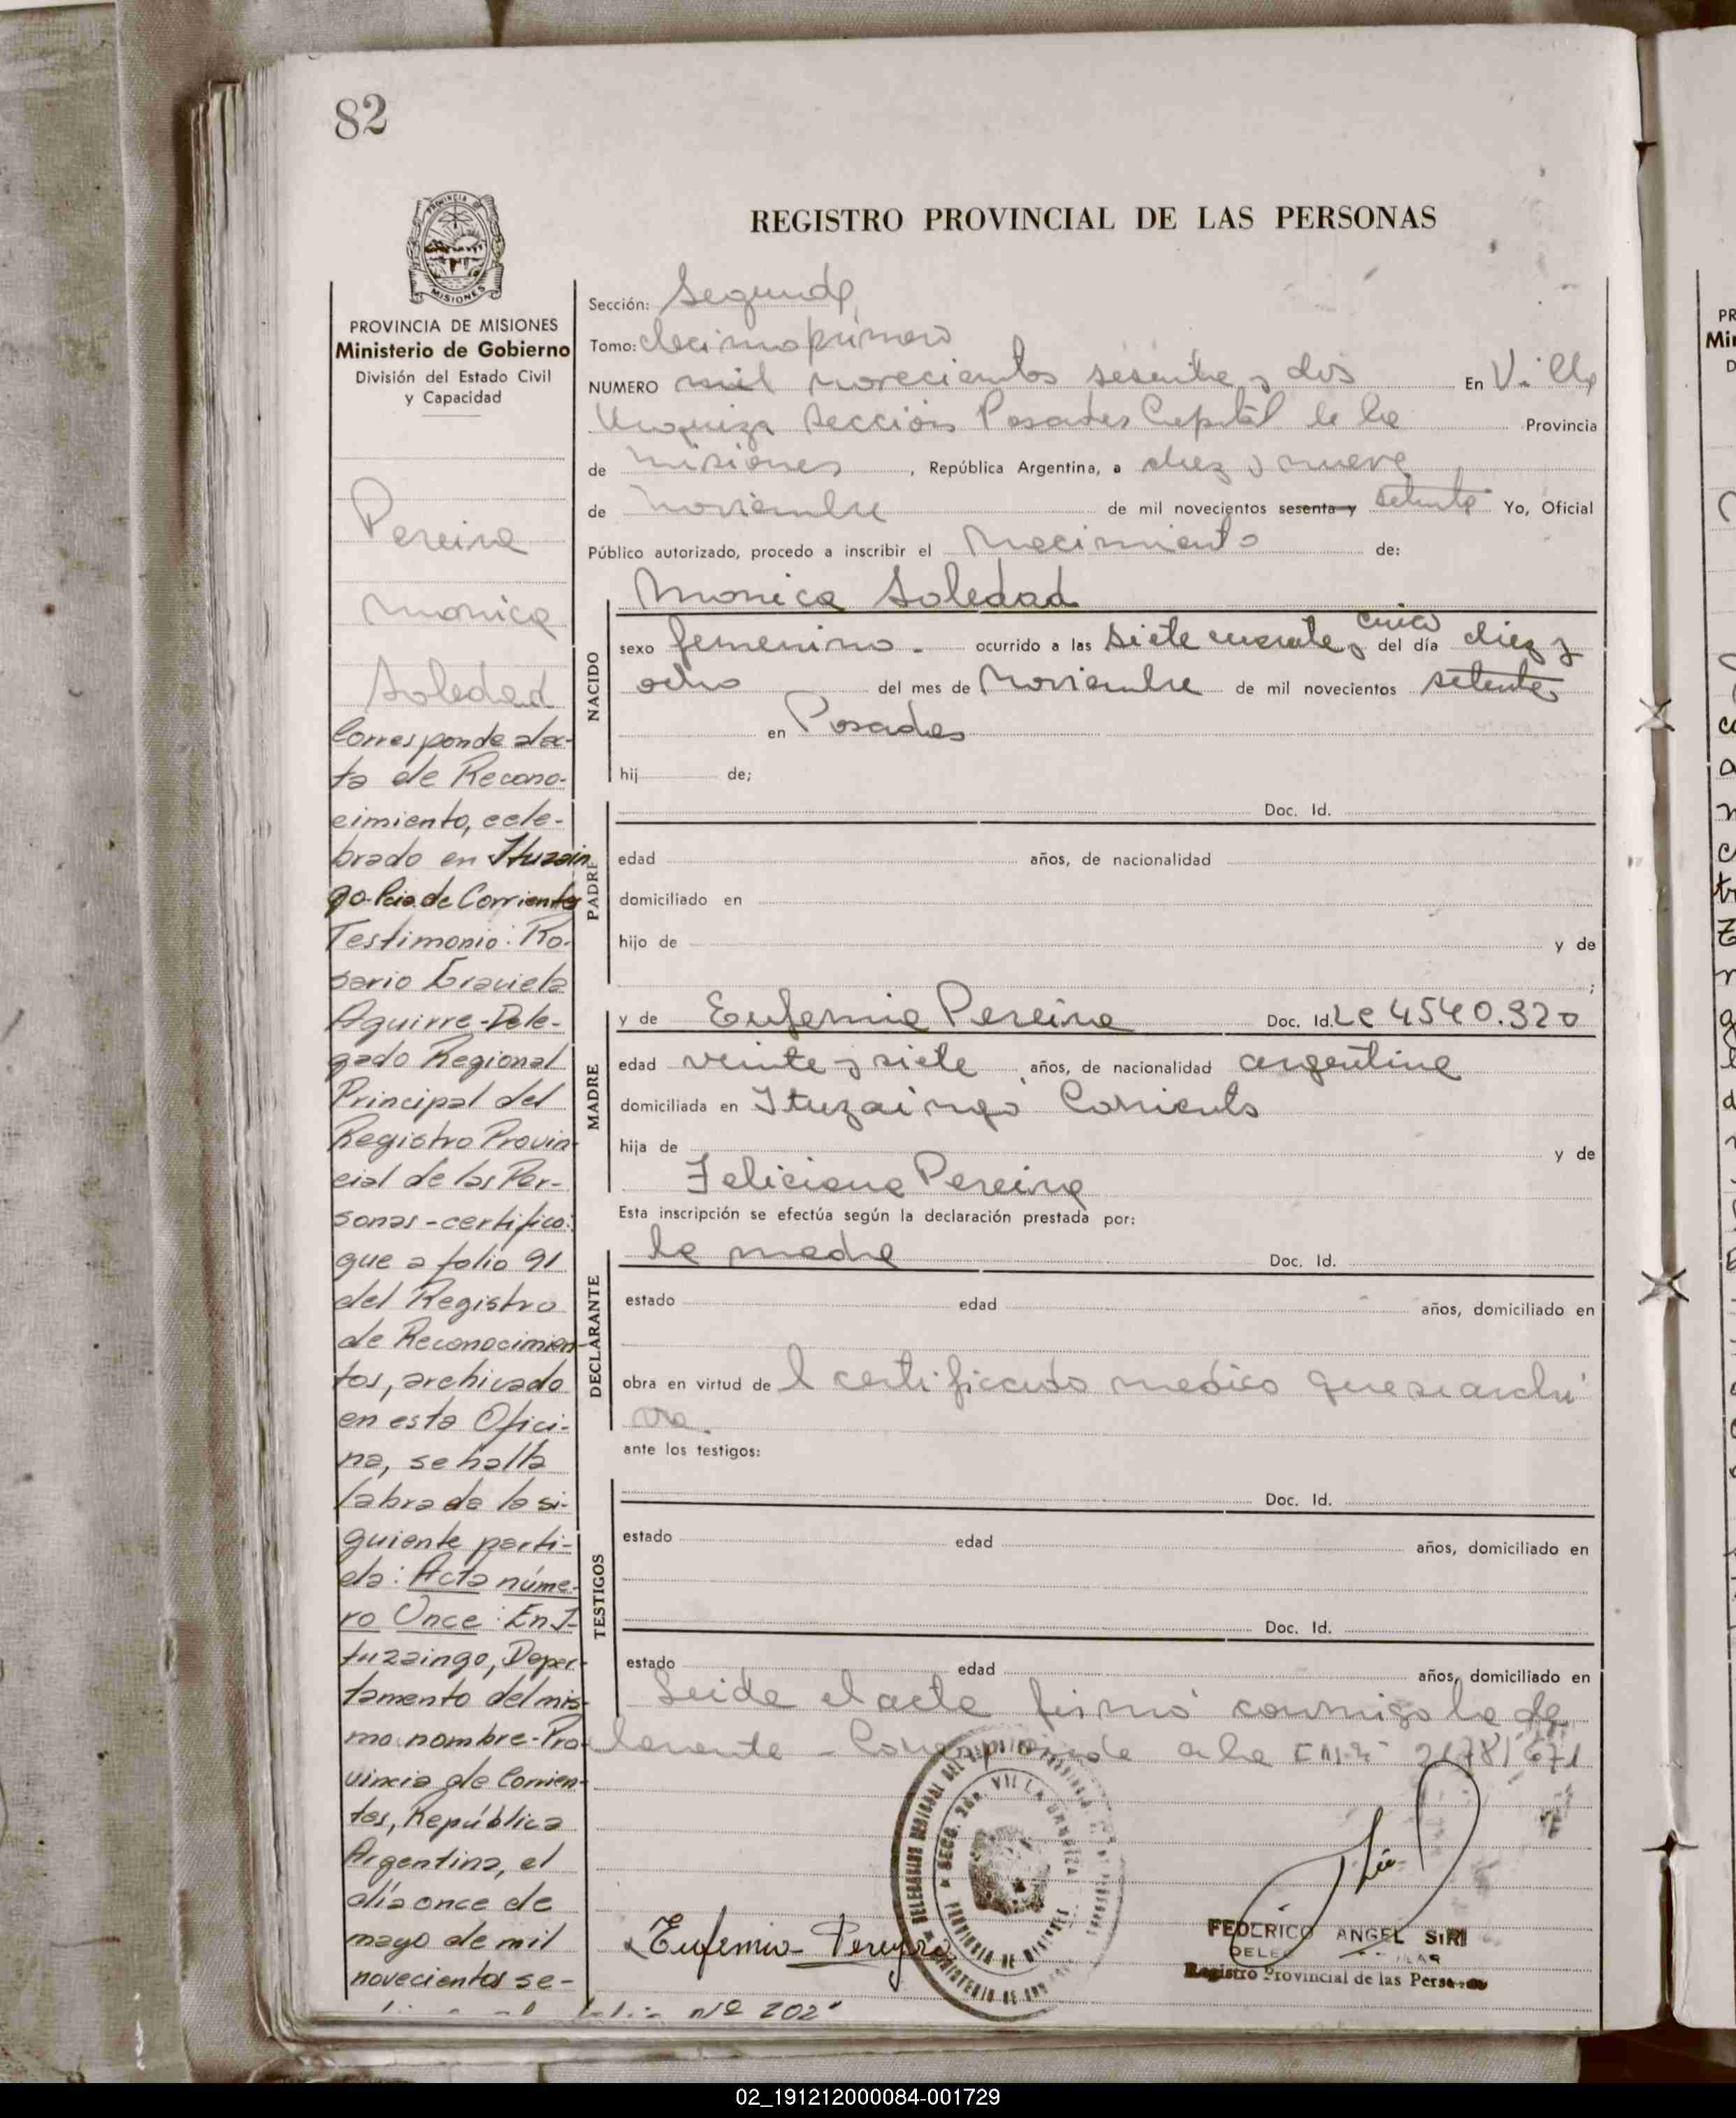 82
REGISTRO PROVINCIAL DE LAS PERSONAS
PROVINCIA DE
MISIONES
PROVINCIA DE MISIONES
Ministerio de Gobierno
División del Estado Civil
y Capacidad
Pereira
Monica
Soledad
Corresponde alac-
ta de Recono-
cimiento, cele-
brado en Ituzain
go-Pcia. de Corrientes
Testimonio: Ro-
sario Graciela
Aguirre-Dele-
gado Regional
Principal del
Registro Provin-
cial de las Per-
sonas-certifico:
que a folio 91
del Registro
de Reconocimien-
tos, archivado
en esta Ofici-
na, se halla
labrada la si-
guiente parti-
da: Acta núme-
ro Once: En I-
tuzaingo, Depar-
tamento del mis-
mo nombre-Pro-
vincia de Corrien-
tes, República
Argentina, el
día once de
mayo de mil
novecientos se-
Nº 202
Sección: Segunda
Tomo: decimo primero
NUMERO mil novecientos sesenta y dos En Villa
Urquiza Sección Posadas Capital de la Provincia
de Misiones, República Argentina, a diez y nueve
de Noviembre de mil novecientos sesenta y setenta Yo, Oficial
Público autorizado, procedo a inscribir el Nacimiento de:
NACIDO
Monica Soledad
sexo femenino. ocurrido a las siete cuarenta y cinco del día diez y
ocho del mes de Noviembre de mil novecientos setenta
en Posadas
hij de;
PADRE
Doc. Id.
edad años, de nacionalidad
domiciliado en
hijo de y de
;
MADRE
y de Eufemia Pereira Doc. Id. LC 4540.320
edad veinte y siete años, de nacionalidad argentina
domiciliada en Ituzaingo Corrientes
hija de y de
Feliciana Pereira
Esta inscripción se efectúa según la declaración prestada por:
DECLARANTE
la madre Doc. Id.
estado edad años, domiciliado en
obra en virtud de l certificado medico que se archi
va.
ante los testigos:
TESTIGOS
Doc. Id.
estado edad años, domiciliado en
Doc. Id.
estado edad años, domiciliado en
Leida el acta firmó conmigo la de
clarante - Corresponde a la
SECC. 2da. VILLA URQUIZA
PROVINCIA DE MISIONES
Eufemia Pereyra
FEDERICO ANGEL SIRI
Registro Provincial de las Personas
02_191212000084-001729